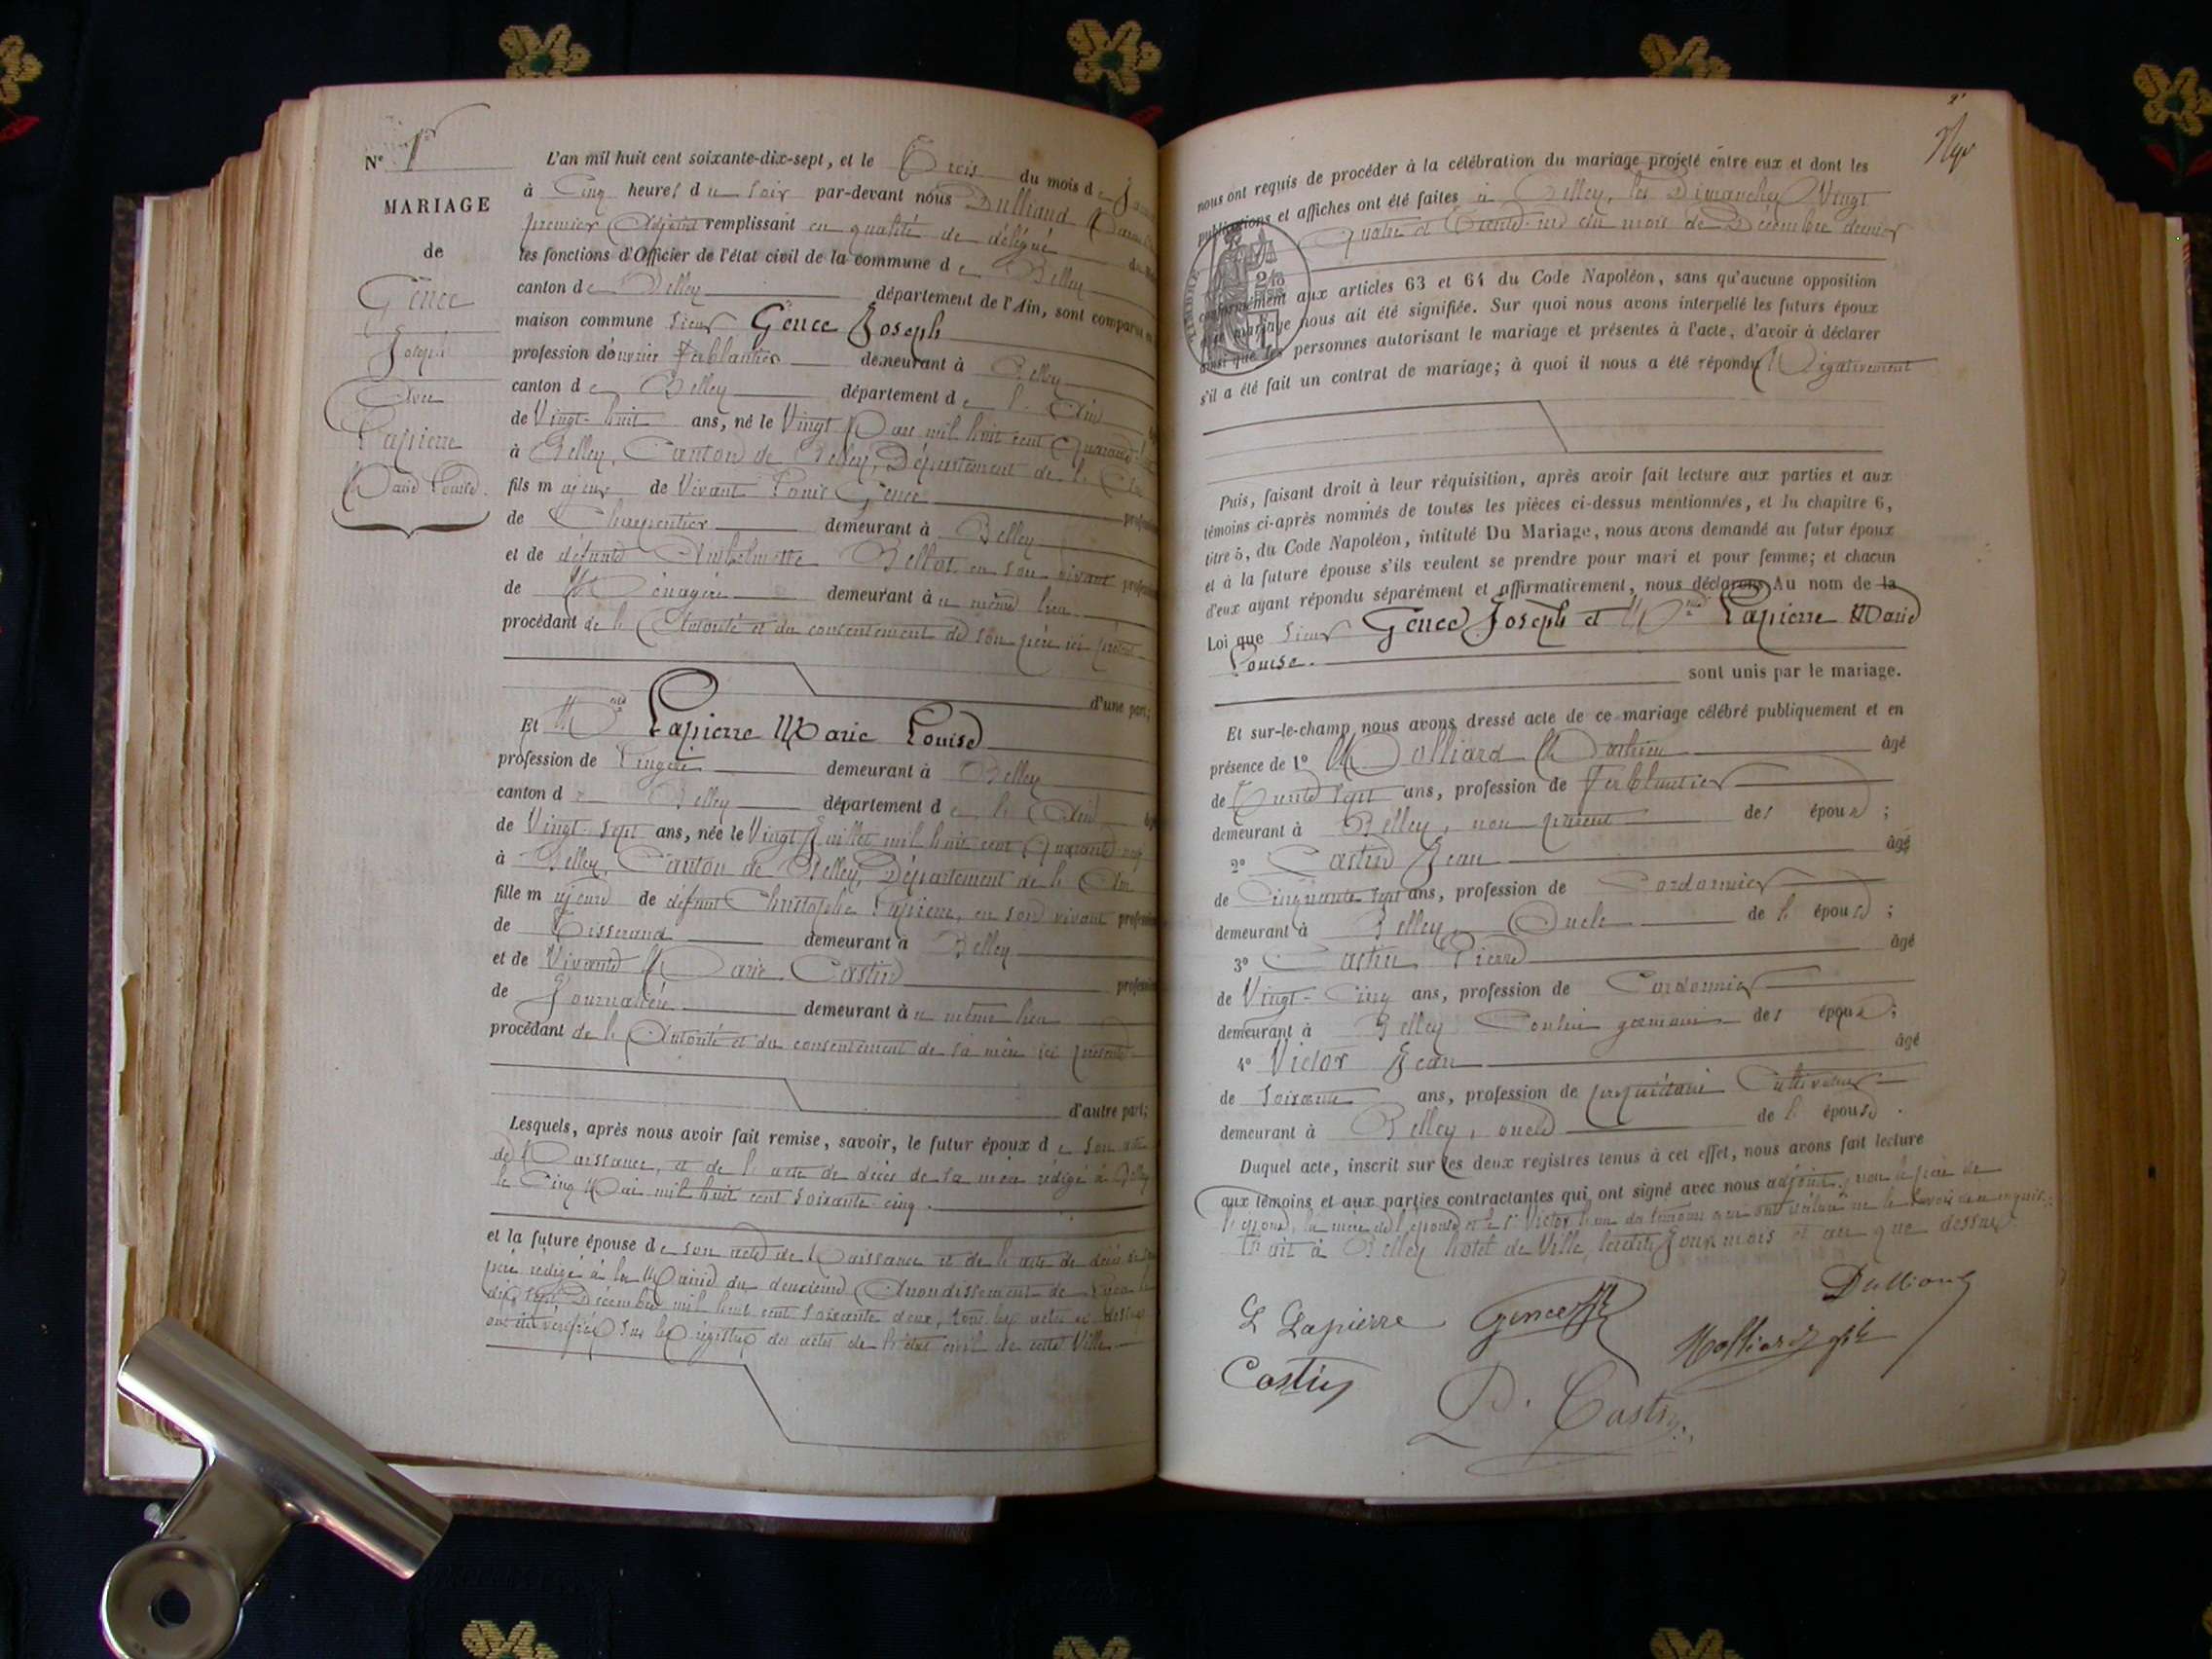 N° 1er
MARIAGE
de
Gence
Joseph
Avec
Lapierre
Marie Louise.
L'an mil huit cent soixante-dix-sept, et le Trois du mois de
à Cinq heures du soir par-devant nous Dulliand
premier Adjoint remplissant en qualité de délégué
les fonctions d'Officier de l'état civil de la commune de Belley
canton de Belley département de l'Ain, sont comparus
maison commune sieur Gence Joseph
profession d'ouvrier Ferblantier demeurant à Belley
canton de Belley département de l'Ain
de Vingt-huit ans, né le Vingt Mars mil huit cent Quarante
à Belley, Canton de Belley, Département de l'Ain
fils majeur de Vivant Gence
de Charpentier demeurant à Belley
et de défunte Bellot, en son vivant
de Ménagère demeurant au même lieu
procédant de l'Autorité et du consentement de son père ici présent
d'une part;
Et Melle Lapierre Marie Louise
profession de Lingère demeurant à Belley
canton de Belley département de l'Ain
de Vingt-sept ans, née le Vingt Juillet mil huit cent Quarante neuf
à Belley, Canton de Belley, Département de l'Ain
fille majeure de défunt Christophe Lapierre, en son vivant
de Tisserand demeurant à Belley
et de Vivante Marie Castin
de Journalière demeurant au même lieu
procédant de l'Autorité et du consentement de sa mère ici présente
d'autre part;
Lesquels, après nous avoir fait remise, savoir, le futur époux de son acte
de Naissance, et de l'acte de décès de sa mère rédigé à Belley
le Cinq Mai mil huit cent soixante-cinq.
et la future épouse de son acte de Naissance et de l'acte de décès de son
père rédigé à la Mairie du deuxième Arrondissement de Lyon le
dix sept Décembre mil huit cent soixante deux, tous les actes ci dessus
ont été vérifiés sur les registres des actes de l'état civil de cette Ville
2
nous ont requis de procéder à la célébration du mariage projeté entre eux et dont les
publications et affiches ont été faites à Belley, les Dimanches Vingt
Quatre et Trente-un du mois de Décembre dernier
conformément aux articles 63 et 64 du Code Napoléon, sans qu'aucune opposition
mariage nous ait été signifiée. Sur quoi nous avons interpellé les futurs époux
ainsi que les personnes autorisant le mariage et présentes à l'acte, d'avoir à déclarer
s'il a été fait un contrat de mariage; à quoi il nous a été répondu Négativement
Puis, faisant droit à leur réquisition, après avoir fait lecture aux parties et aux
témoins ci-après nommés de toutes les pièces ci-dessus mentionnées, et du chapitre 6,
titre 5, du Code Napoléon, intitulé Du Mariage, nous avons demandé au futur époux
et à la future épouse s'ils veulent se prendre pour mari et pour femme; et chacun
d'eux ayant répondu séparément et affirmativement, nous déclarons Au nom de la
Loi que sieur Gence Joseph et Melle Lapierre Marie
Louise.
sont unis par le mariage.
Et sur-le-champ nous avons dressé acte de ce mariage célébré publiquement et en
présence de 1° Molliard âgé
de Trente sept ans, profession de Ferblantier
demeurant à Belley, non parent des époux;
2° Castin Jean âgé
de Cinquante sept ans, profession de Cordonnier
demeurant à Belley, Oncle de l'épouse;
3° Castin Pierre âgé
de Vingt-Cinq ans, profession de Cordonnier
demeurant à Belley Cousin germain de l'épouse;
4° Victor Jean âgé
de Soixante ans, profession de propriétaire Cultivateur
demeurant à Belley, oncle de l'épouse.
Duquel acte, inscrit sur les deux registres tenus à cet effet, nous avons fait lecture
aux témoins et aux parties contractantes qui ont signé avec nous adjoint, non le père de
l'époux, la mère de l'épouse et le Sr Victor l'un des témoins qui ont déclaré ne le savoir de ce requis.
Fait à Belley hôtel de Ville, lesdits Jour, mois et an que dessus
L Lapierre Gence Dulliand
Castin Molliard
P. Castin